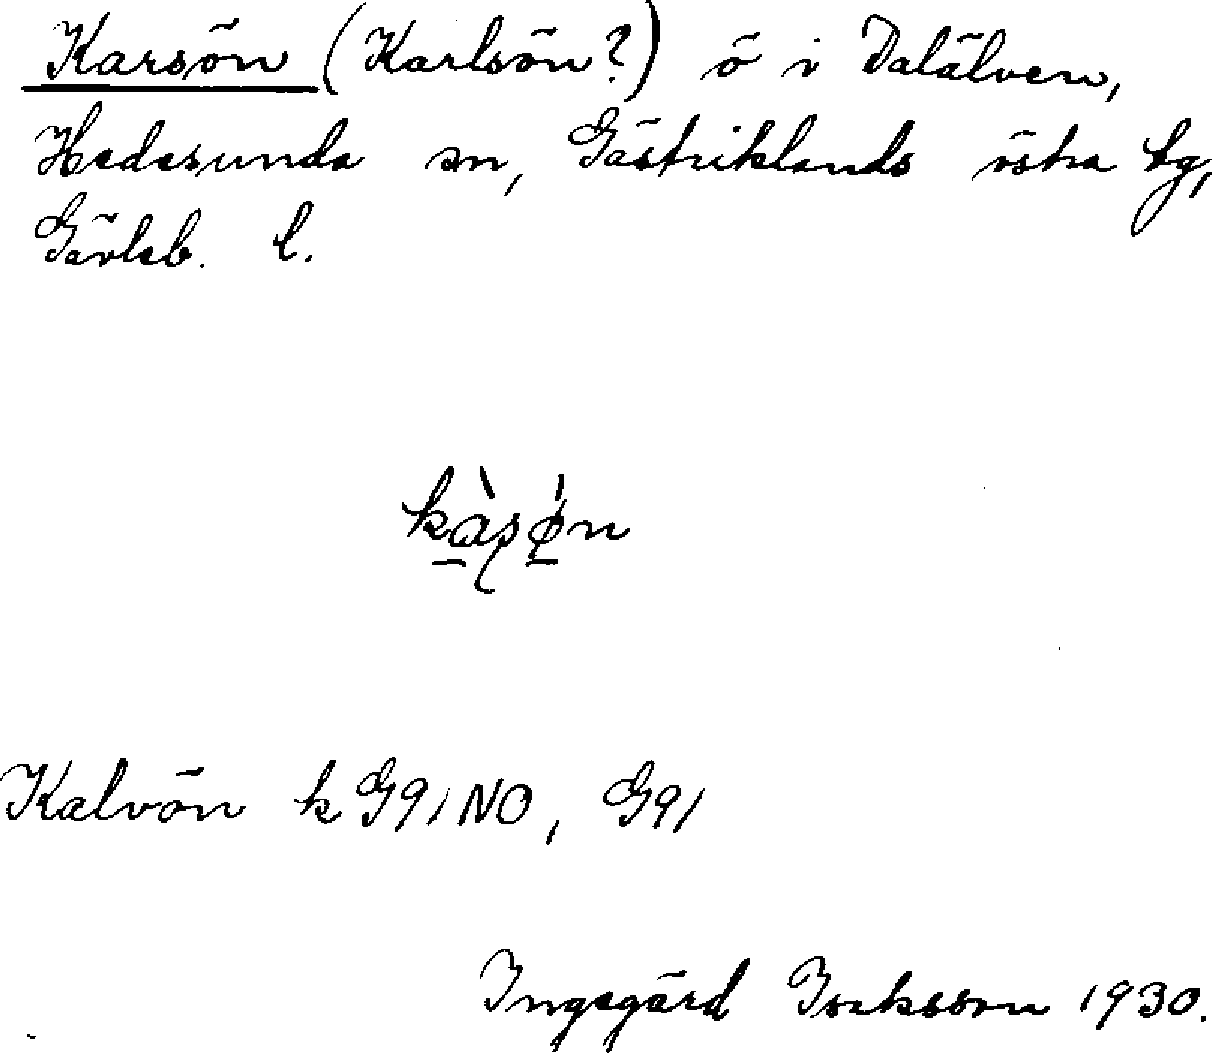 Karsön (Karlsön?) ö i Dalälven,
Hedesunda sn, Gästriklands östra tg,
Gävleb. l.
kàsǿn
Kalvön k G91NO, G91
Ingegärd Isaksson 1930.